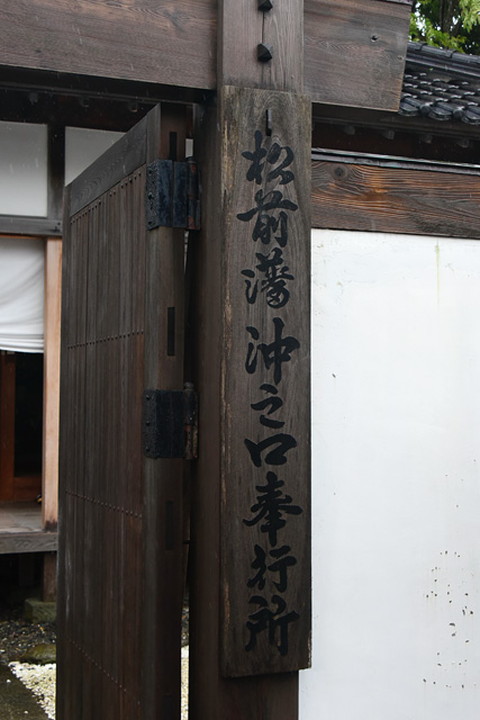 松前藩沖之口奉行所